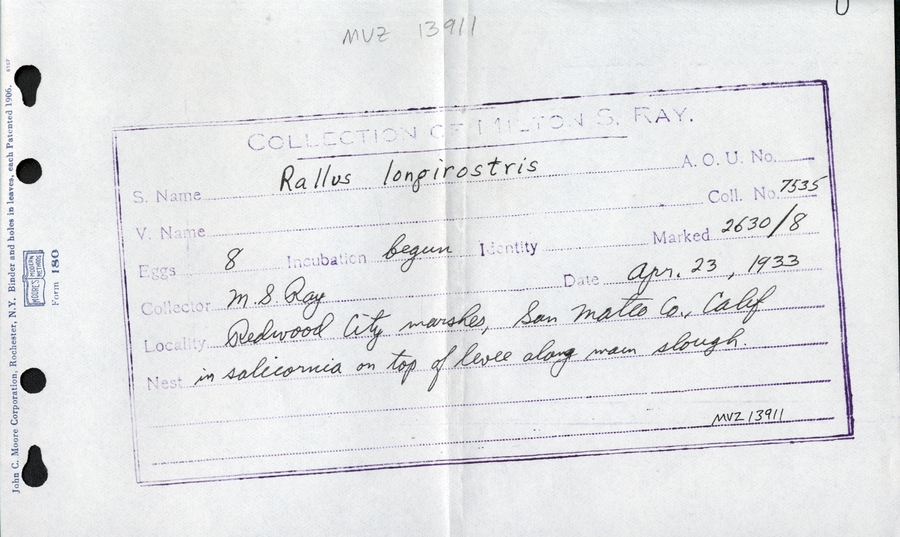 MVZ 13911
COLLECTION OF MILTON S. RAY.
S. Name Rallus longirostris A. O. U. No.
V. Name Coll. No. 7535
Eggs 8 Incubation begun Identity Marked 2630/8
Collector M.S. Ray Date Apr. 23, 1933
Locality Redwood City marshes, San Mateo Co., Calif
Nest in salicornia on top of levee along main slough.
MVZ 13911
John C. Moore Corporation, Rochester, N.Y. Binder and holes in leaves, each Patented 1906.
MOORE'S MODERN METHODS
Form 180